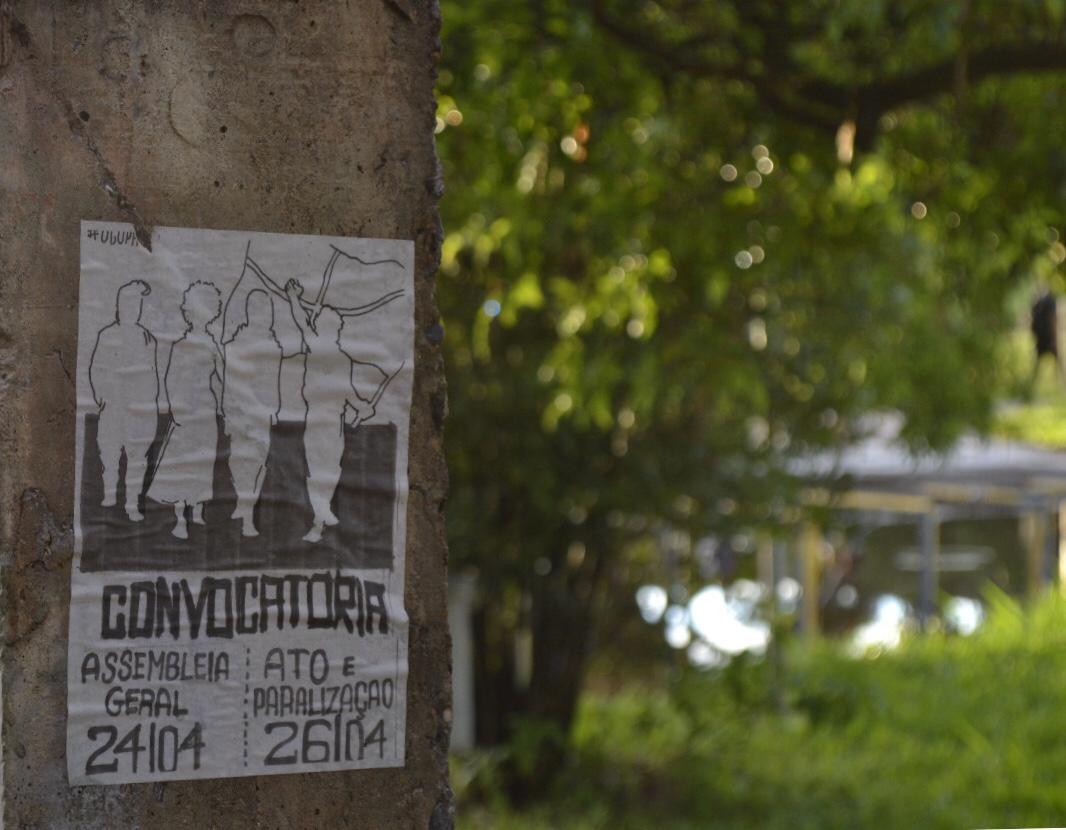 CONVOCATORIA
ASSEMBLEIA
GERAL
24/04
ATO E
PARALIZAÇÃO
26/04